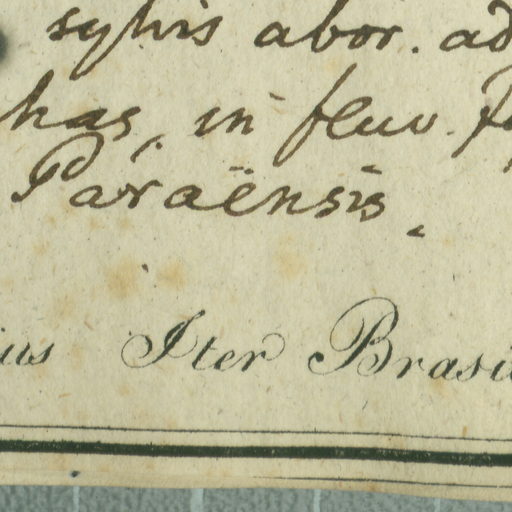 sylvis abor. ad
has, in fluv.
Paraënsis.
ius Iter Brasi